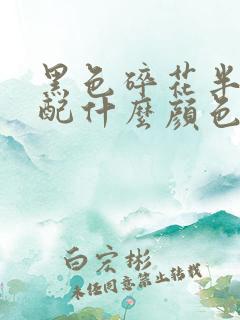 黑色碎花半
配什麼顏色
白宏彬
未经同意禁止转载